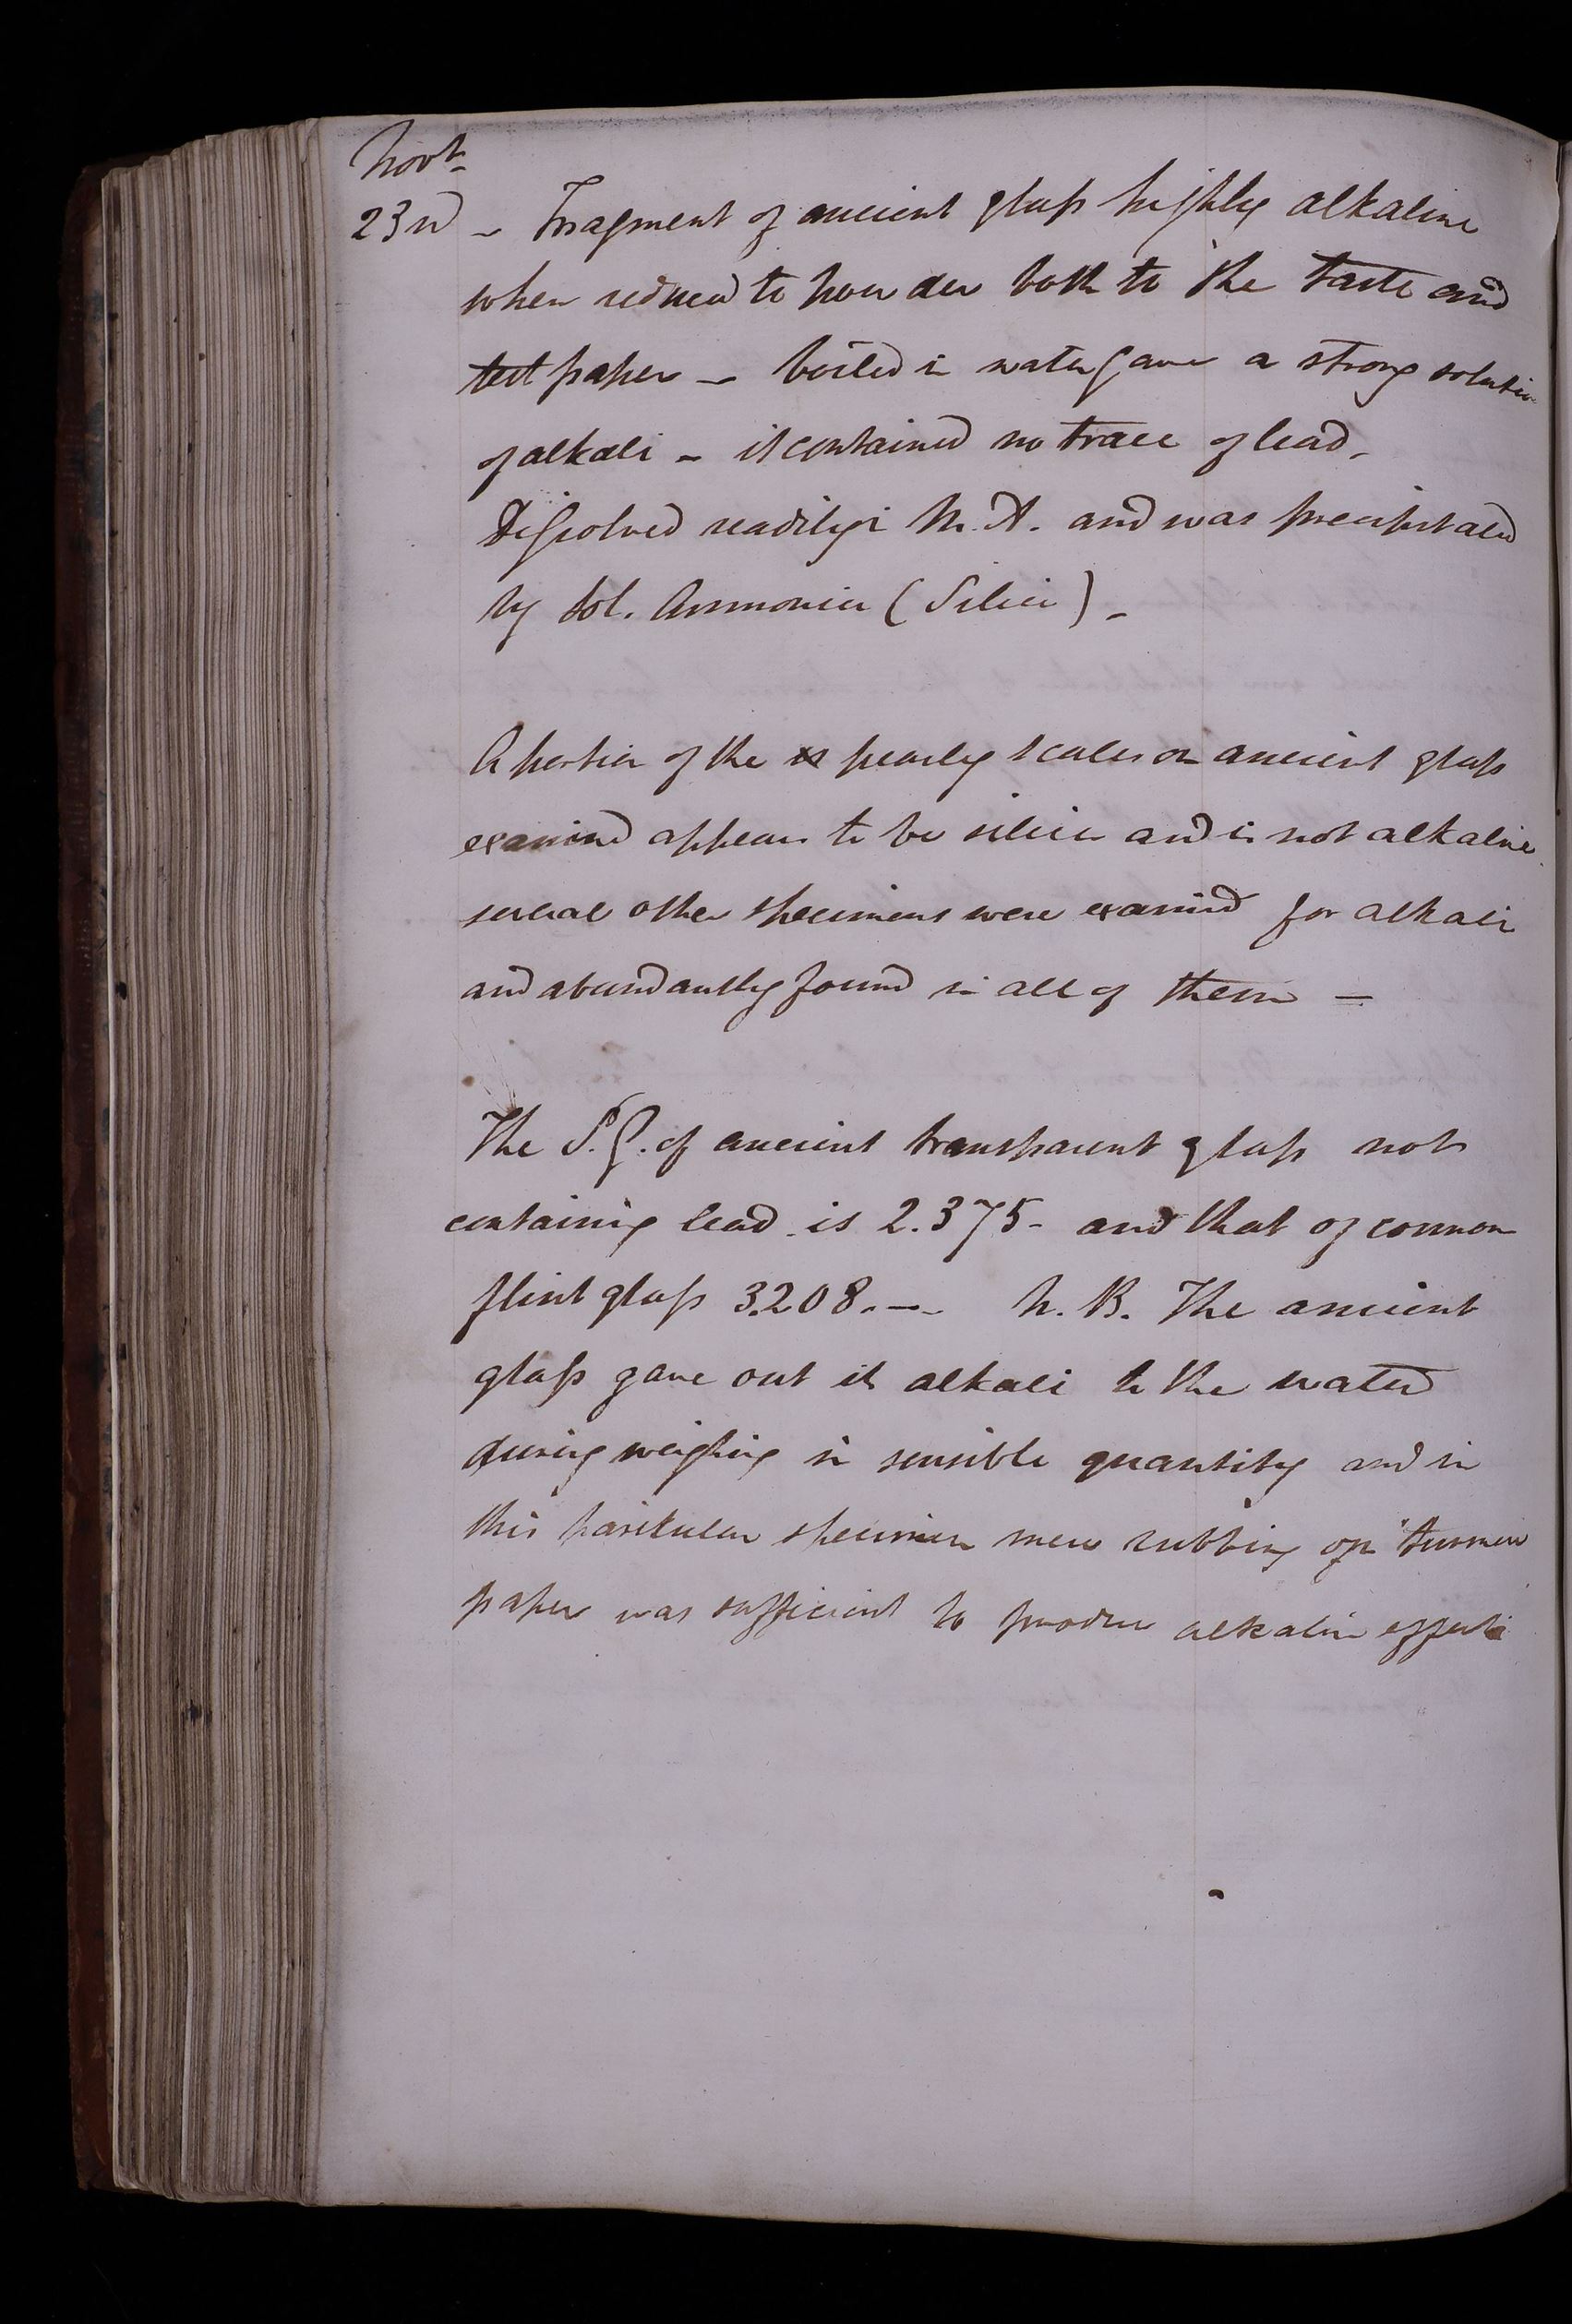 Novr
23rd - Fragment of ancient glass highly alkaline
when reduced to powder both to the taste and
test paper - boiled in water gave a strong solution
of alkali - it contained no trace of lead.
Dissolved readily i M. A. and was precipitated
by Sol. Ammonia (Silica) -
A portion of the pearly scales on ancient glass
examined appears to be silica and is not alkaline
several other specimens were examined for alkali
and abundantly found in all of them -
The S.G. of ancient transparent glass not
containing lead is 2.375 - and that of common
flint glass 3.208. - N.B. The ancient
glass gave out its alkali to the water
during weighing in sensible quantity and in
this particular specimen mere rubbing on turmeric
paper was sufficient to produce alkaline effects